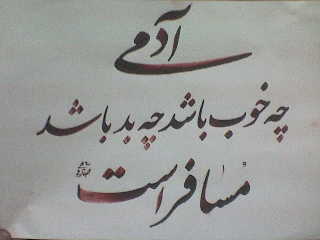 آدمی
چه خوب باشد چه بد باشد
مسافر است